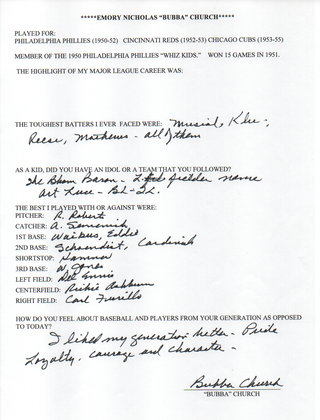 *****EMORY NICHOLAS "BUBBA" CHURCH*****
PLAYED FOR:
PHILADELPHIA PHILLIES (1950-52) CINCINNATI REDS (1952-53) CHICAGO CUBS (1953-55)
MEMBER OF THE 1950 PHILADELPHIA PHILLIES "WHIZ KIDS." WON 15 GAMES IN 1951.
THE HIGHLIGHT OF MY MAJOR LEAGUE CAREER WAS:
THE TOUGHEST BATTERS I EVER FACED WERE: Musial, Klu-,
Reese, Mathews - all of them
AS A KID, DID YOU HAVE AN IDOL OR A TEAM THAT YOU FOLLOWED?
The Bham Baron - fielder name
Art Luce -
THE BEST I PLAYED WITH OR AGAINST WERE:
PITCHER: R. Robert
CATCHER: A. Seminick
1ST BASE: Waitkus, Eddie
2ND BASE: Schoendist, Cardinals
SHORTSTOP: Hamner
3RD BASE: W. Jones
LEFT FIELD: Del Ennis
CENTERFIELD: Richie Ashburn
RIGHT FIELD: Carl Furillo
HOW DO YOU FEEL ABOUT BASEBALL AND PLAYERS FROM YOUR GENERATION AS OPPOSED
TO TODAY?
I liked my generation better - Pride
Loyalty, courage and character -
Bubba Church
"BUBBA" CHURCH